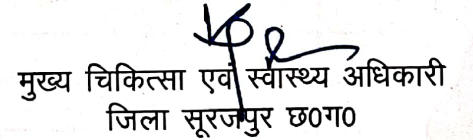 मुख्य चिकित्सा एवं स्वास्थ्य अधिकारी
जिला सूरजपुर छ0ग0